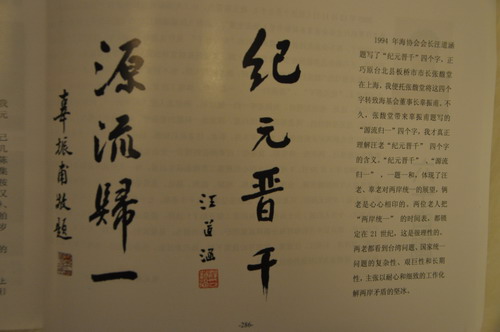 1994 年海协会会长汪道涵
题写了“纪元晋千”四个字，正
巧原台北县板桥市市长张馥堂
在上海，我便托张馥堂将这四个
字转致海基会董事长辜振甫。不
久，张馥堂带来辜振甫题写的
“源流归一”四个字，我才真正
理解汪老“纪元晋千”四个字
的含义。“纪元晋千”、“源流
归一”，一题一和，体现了汪
老、辜老对两岸统一的展望，俩
老是心心相印的。两位老人把
“两岸统一”的时间表，都锁
定在 21 世纪，这是很理性的。
两老都看到台湾问题、国家统一
问题的复杂性、艰巨性和长期
性，主张以耐心和细致的工作化
解两岸矛盾的坚冰。
纪元晋千
汪道涵
源流歸一
辜振甫敬题
-286-